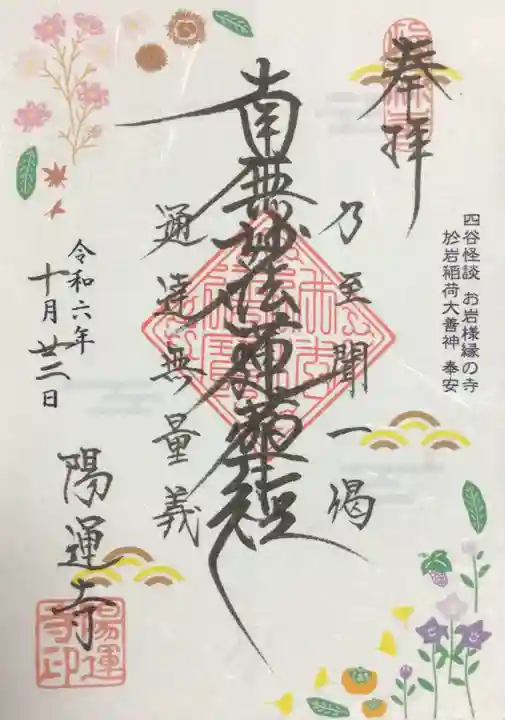 奉拝
四谷怪談 お岩様縁の寺
於岩稲荷大善神 奉安
乃至聞一偈
南無妙法蓮華経
通達無量義
令和六年
十月廿二日
陽運寺
陽運
寺印